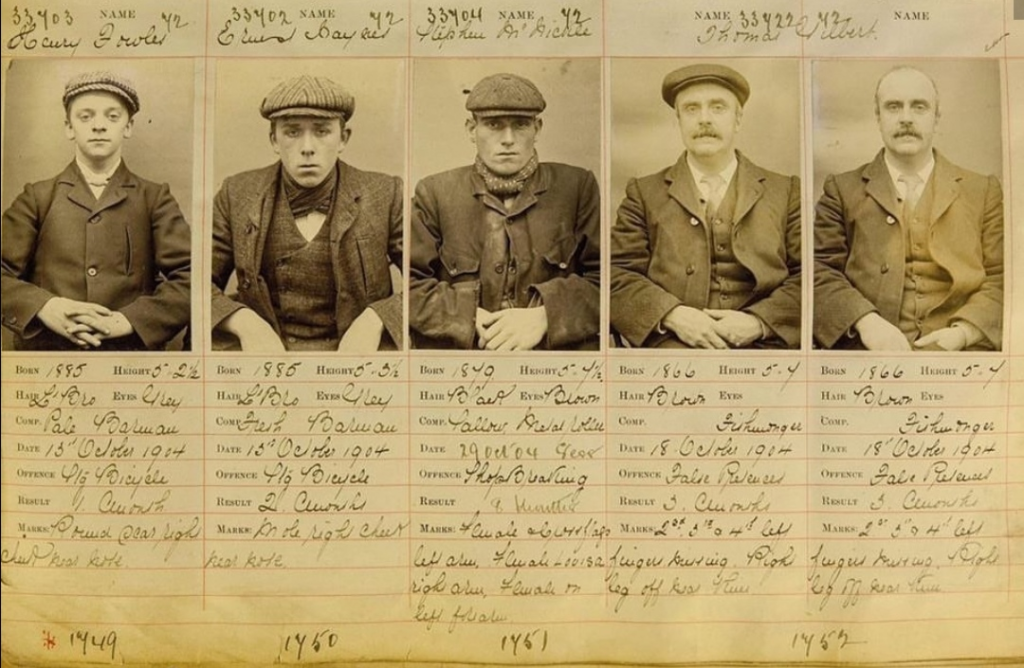 33703 NAME 72
Henry Fowler
Born 1885 Height 5-2½
Hair Lt Bro Eyes Grey
Comp. Pale Barman
Date 13th October 1904
Offence Stg Bicycle
Result 1. Cmonth
Marks: Round Scar right
cheek near nose.
1749
33702 NAME 72
Ernest Haynes
Born 1885 Height 5-3½
Hair Lt Bro Eyes Grey
Comp. Fresh Barman
Date 13th October 1904
Offence Stg Bicycle
Result 2. Cmonths
Marks: Mole right cheek
near nose.
1750
33704 NAME 72
Stephen
Born Height
Hair Black Eyes Brown
Comp. Sallow Metal roller
Date 29 Oct 04
Offence Shop Breaking
Result
Marks: Female
left arm, Female Louisa
right arm, Female on
left forearm
1751
NAME 33722 72
Thomas
Born 1866 Height 5-7
Hair Brown Eyes
Comp. Fishmonger
Date 18. October 1904
Offence False Pretences
Result 3. Cmonths
Marks: 2nd 3rd & 4th left
fingers missing. Right
leg off near
NAME
Born 1866 Height 5-7
Hair Brown Eyes
Comp. Fishmonger
Date 18th October 1904
Offence False Pretences
Result 3. Cmonths
Marks: 2nd 3rd & 4th left
fingers missing. Right
leg off near
1752